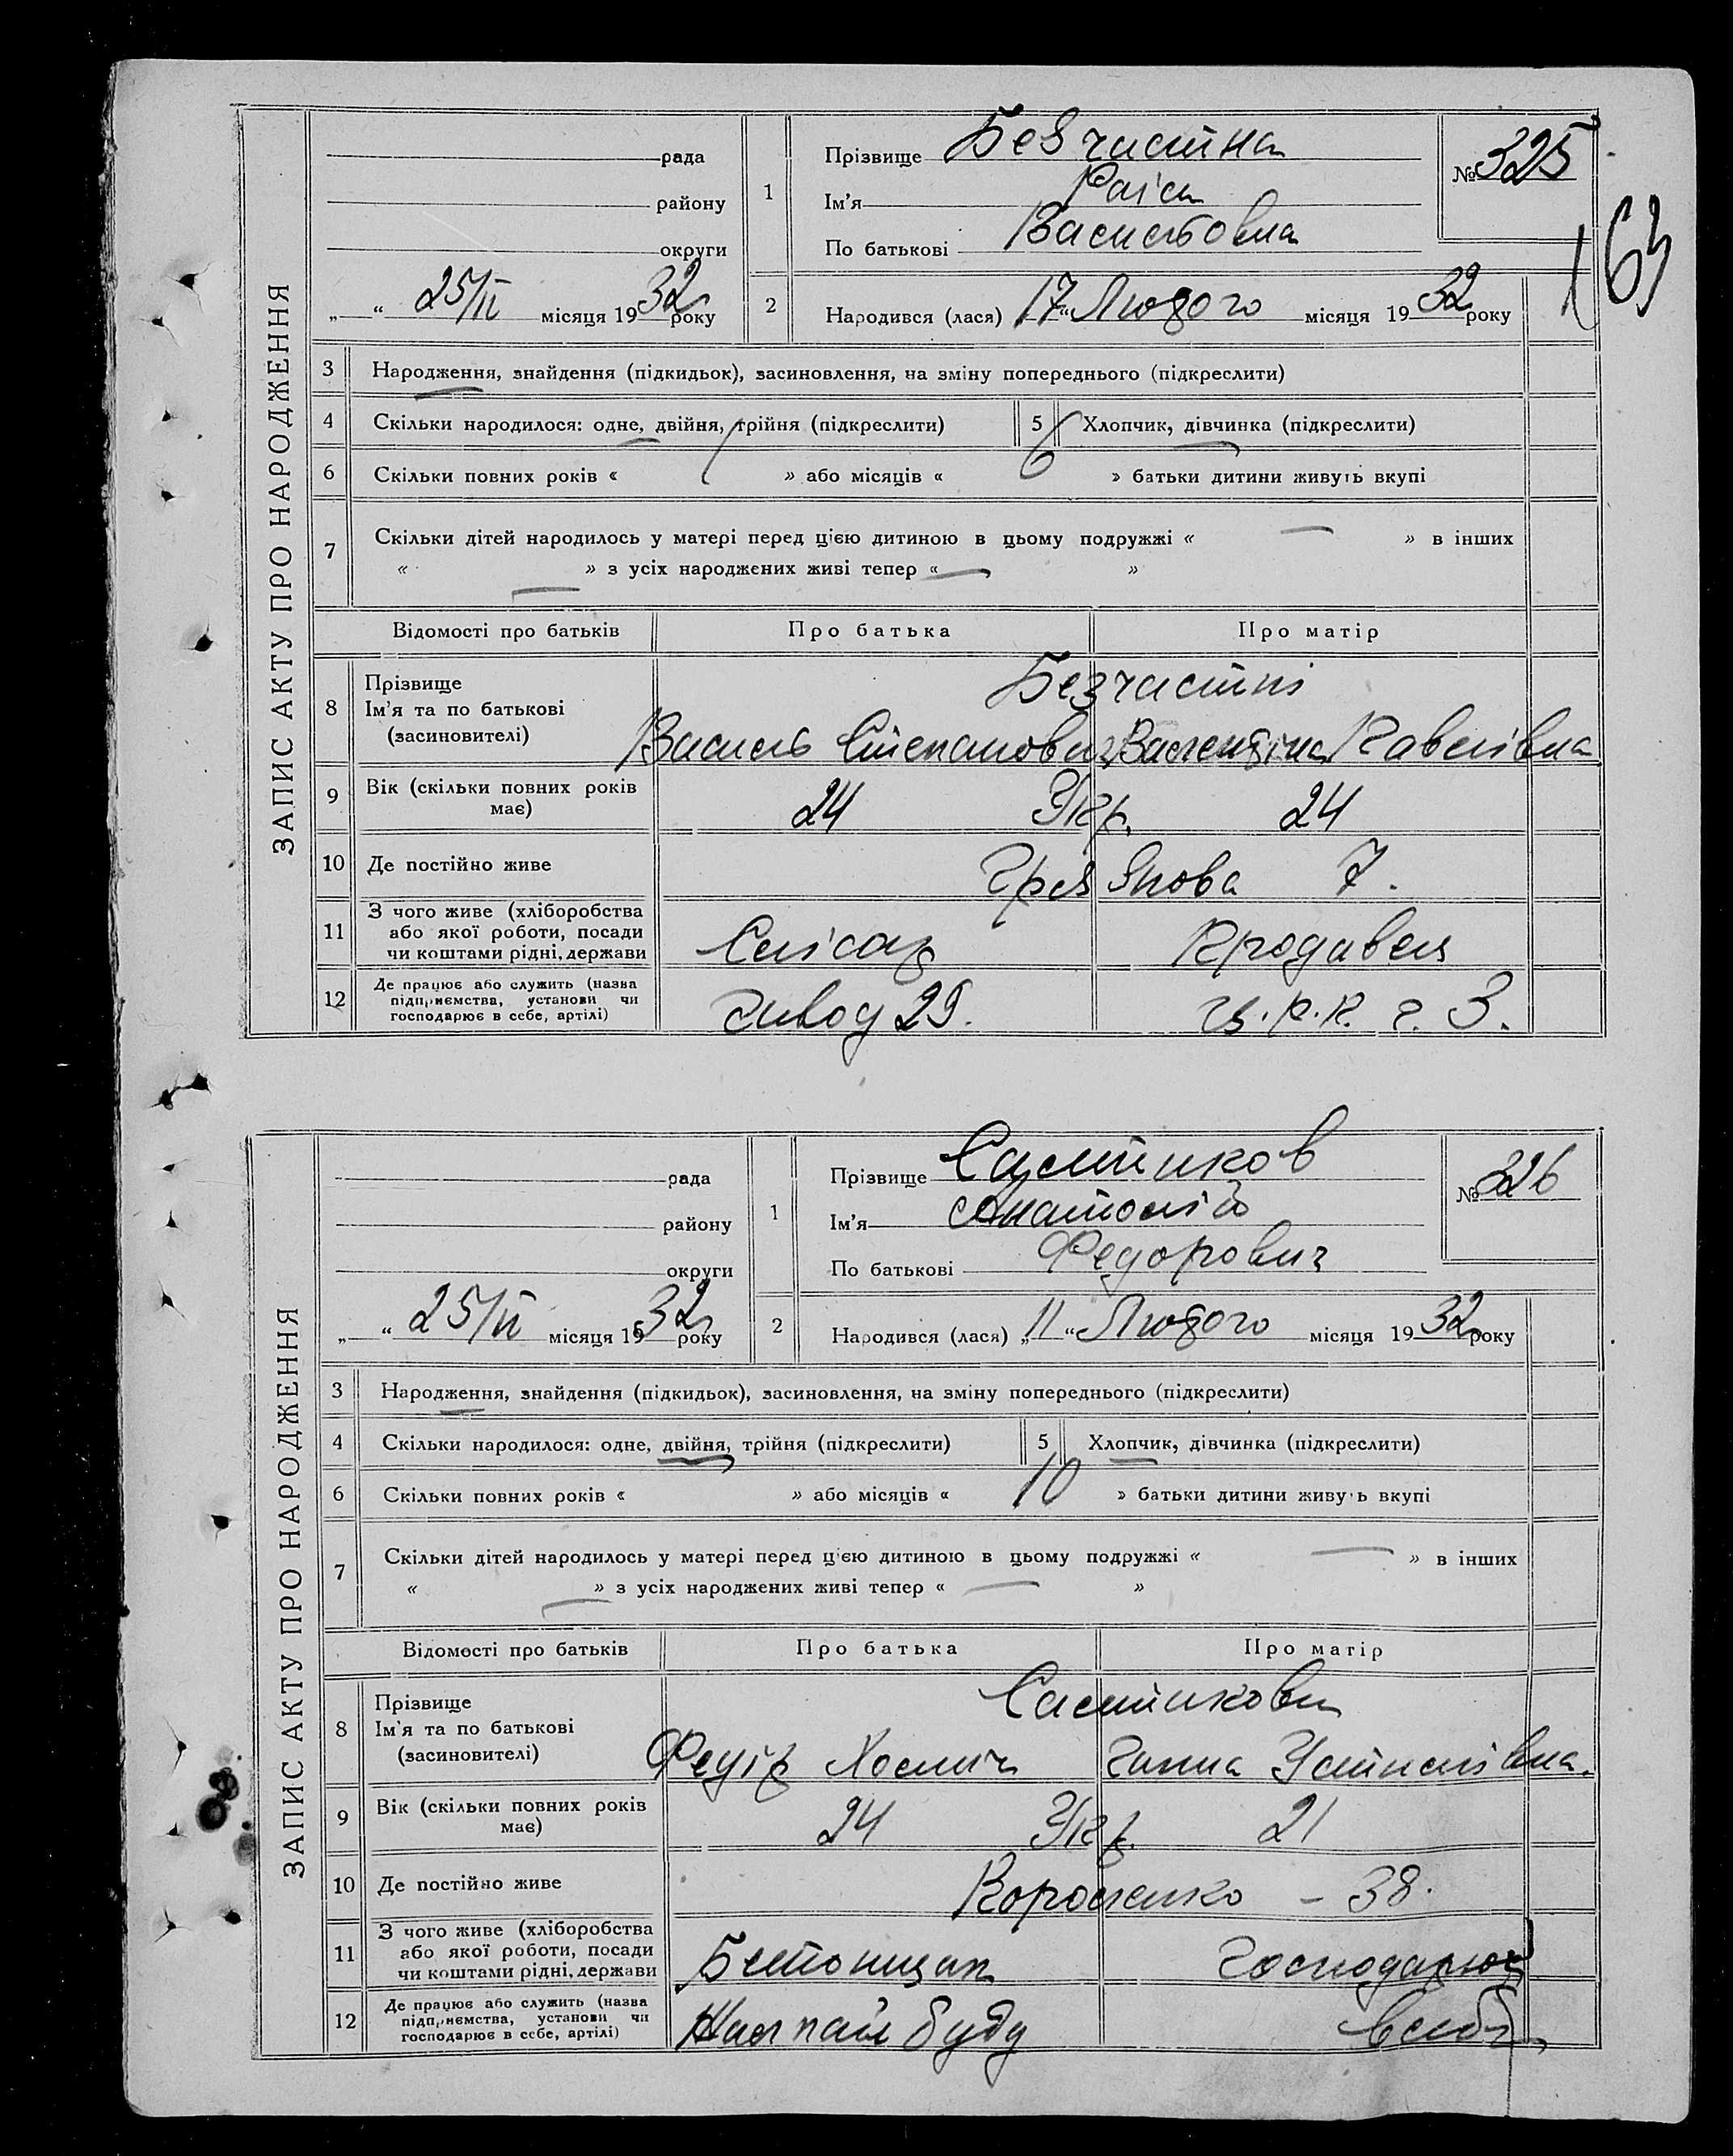 ЗАПИС АКТУ ПРО НАРОДЖЕННЯ
163
рада
району
округи
„ “ 25/II місяця 1932 року
1 Прізвище Безчастна
Ім'я Раіса
По батькові Васильовна
№ 325
2 Народився (лася) 17 “ Лютого місяця 1932 року
3 Народження, знайдення (підкидьок), засиновлення, на зміну попереднього (підкреслити)
4 Скільки народилося: одне, двійня, трійня (підкреслити) 5 Хлопчик, дівчинка (підкреслити)
6 Скільки повних років « 1 » або місяців « 6 » батьки дитини живуть вкупі
7 Скільки дітей народилось у матері перед цією дитиною в цьому подружжі « — » в інших
« — » з усіх народжених живі тепер « — »
Відомості про батьків Про батька Про матір
8 Прізвище Ім'я та по батькові (засиновителі) Безчастні
Василь Степанович Валентіна Павелівна
9 Вік (скільки повних років має) 24 Укр. 24
10 Де постійно живе 7.
11 З чого живе (хліборобства або якої роботи, посади чи коштами рідні, держави Слісар Продавец
12 Де працює або служить (назва підприємства, установи чи господарює в себе, артілі) Завод 29. Ц.Р.К. г. 3.
ЗАПИС АКТУ ПРО НАРОДЖЕННЯ
рада
району
округи
„ “ 25/II місяця 1932 року
1 Прізвище
Ім'я Анатолій
По батькові Федорович
№ 326
2 Народився (лася) „ 11 “ Лютого місяця 1932 року
3 Народження, знайдення (підкидьок), засиновлення, на зміну попереднього (підкреслити)
4 Скільки народилося: одне, двійня, трійня (підкреслити) 5 Хлопчик, дівчинка (підкреслити)
6 Скільки повних років « » або місяців « 10 » батьки дитини живуть вкупі
7 Скільки дітей народилось у матері перед цією дитиною в цьому подружжі « — » в інших
« — » з усіх народжених живі тепер « — »
Відомості про батьків Про батька Про матір
8 Прізвище Ім'я та по батькові (засиновителі)
Федір Ганна
9 Вік (скільки повних років має) 24 Укр. 21
10 Де постійно живе Короленко – 38.
11 З чого живе (хліборобства або якої роботи, посади чи коштами рідні, держави Бетонщик Господарює
12 Де працює або служить (назва підприємства, установи чи господарює в себе, артілі) буду в себе